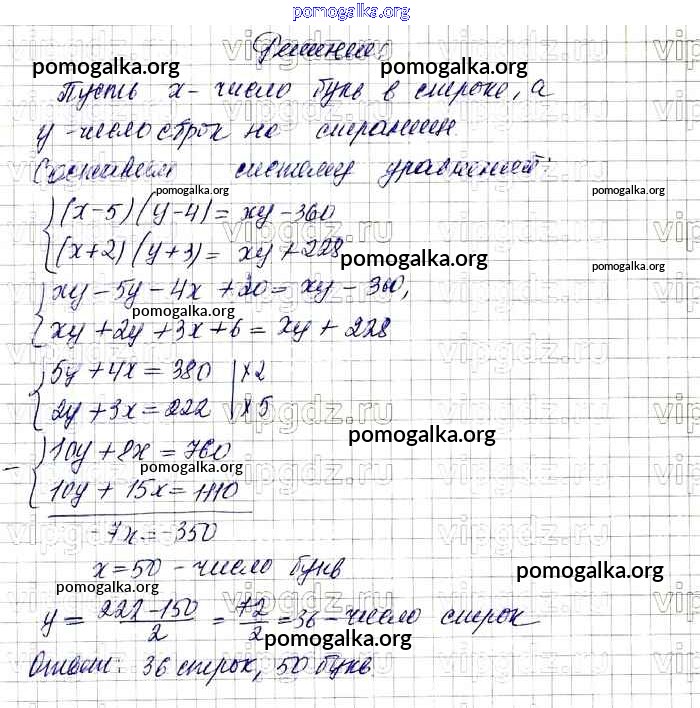 pomogalka.org
Решение:
pomogalka.org pomogalka.org
Пусть x - число букв в строке, а
y - число строк на странице
Составляем систему уравнений:
pomogalka.org pomogalka.org
(x-5)(y-4) = xy - 360
(x+2)(y+3) = xy + 228
pomogalka.org pomogalka.org
xy - 5y - 4x + 20 = xy - 360,
pomogalka.org
xy + 2y + 3x + 6 = xy + 228
5y + 4x = 380 | x2
2y + 3x = 222 | x5
vipgdz.ru
pomogalka.org
- 10y + 8x = 760
pomogalka.org
10y + 15x = 1110
-7x = -350
x = 50 - число букв
pomogalka.org pomogalka.org
y = 222-150/2 = 72/2 = 36 - число строк
pomogalka.org
Ответ: 36 строк, 50 букв